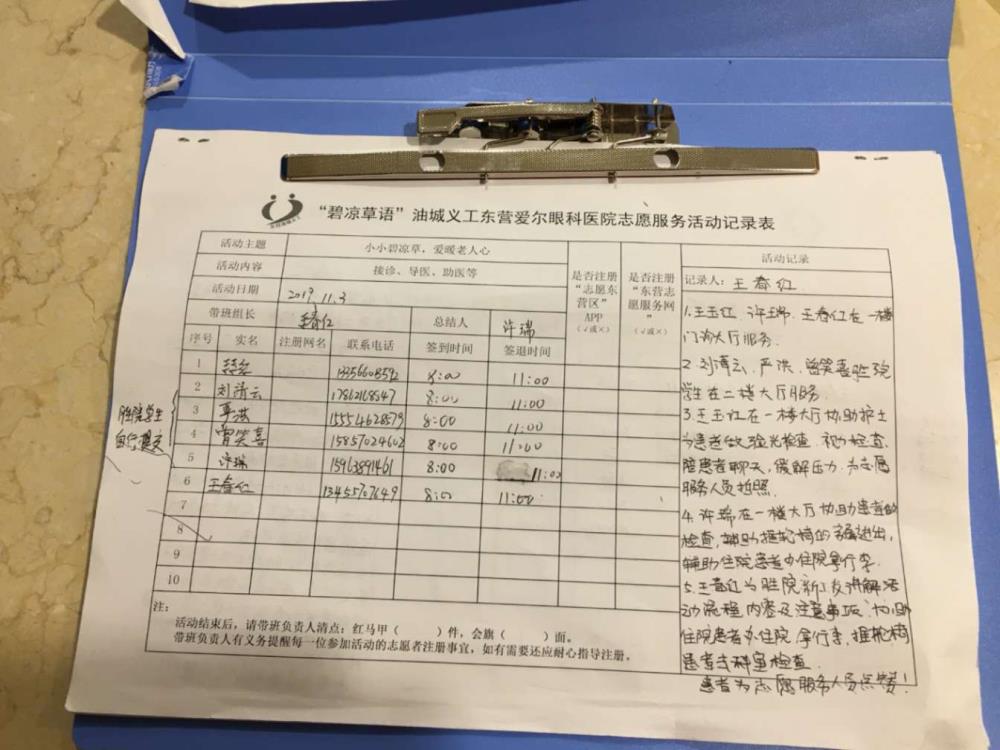 “碧凉草语”油城义工东营爱尔眼科医院志愿服务活动记录表
活动主题 小小碧凉草，爱暖老人心
活动内容 接诊、导医、助医等
活动日期 2019.11.3
带班组长 王春红 总结人 许瑞
序号 实名 注册网名 联系电话 签到时间 签退时间
是否注册“志愿东营区”APP（√或×）
是否注册“东营志愿服务网”（√或×）
1 13356608592 8:00 11:00
2 刘清云 17862168847 8:00 11:00
3 严洪 15554628579 8:00 11:00
4 曾笑喜 15857024602 8:00 11:00
5 许瑞 15963891461 8:00 11:00
6 王春红 13455707649 8:00 11:00
7
8
9
10
胜院学生
自行
注：
活动结束后，请带班负责人清点：红马甲（ ）件，会旗（ ）面。
带班负责人有义务提醒每一位参加活动的志愿者注册事宜，如有需要还应耐心指导注册。
活动记录
记录人：王春红
1.王玉红 许瑞.王春红在一楼
门诊大厅服务.
2.刘清云.严洪.曾笑喜胜院
学生在二楼大厅服务
3.王玉红在一楼大厅协助护士
为患者做验光检查.视力检查.
陪患者聊天，缓解压力.为志愿
服务人员拍照.
4.许瑞在一楼大厅协助患者的
检查，辅助推轮椅的患者进出，
辅助住院患者办住院拿行李.
5.王春红为胜院新义工讲解活
动流程内容及注意事项.协助
住院患者办住院拿行李，推轮椅
患者去科室检查.
患者为志愿服务人员点赞！